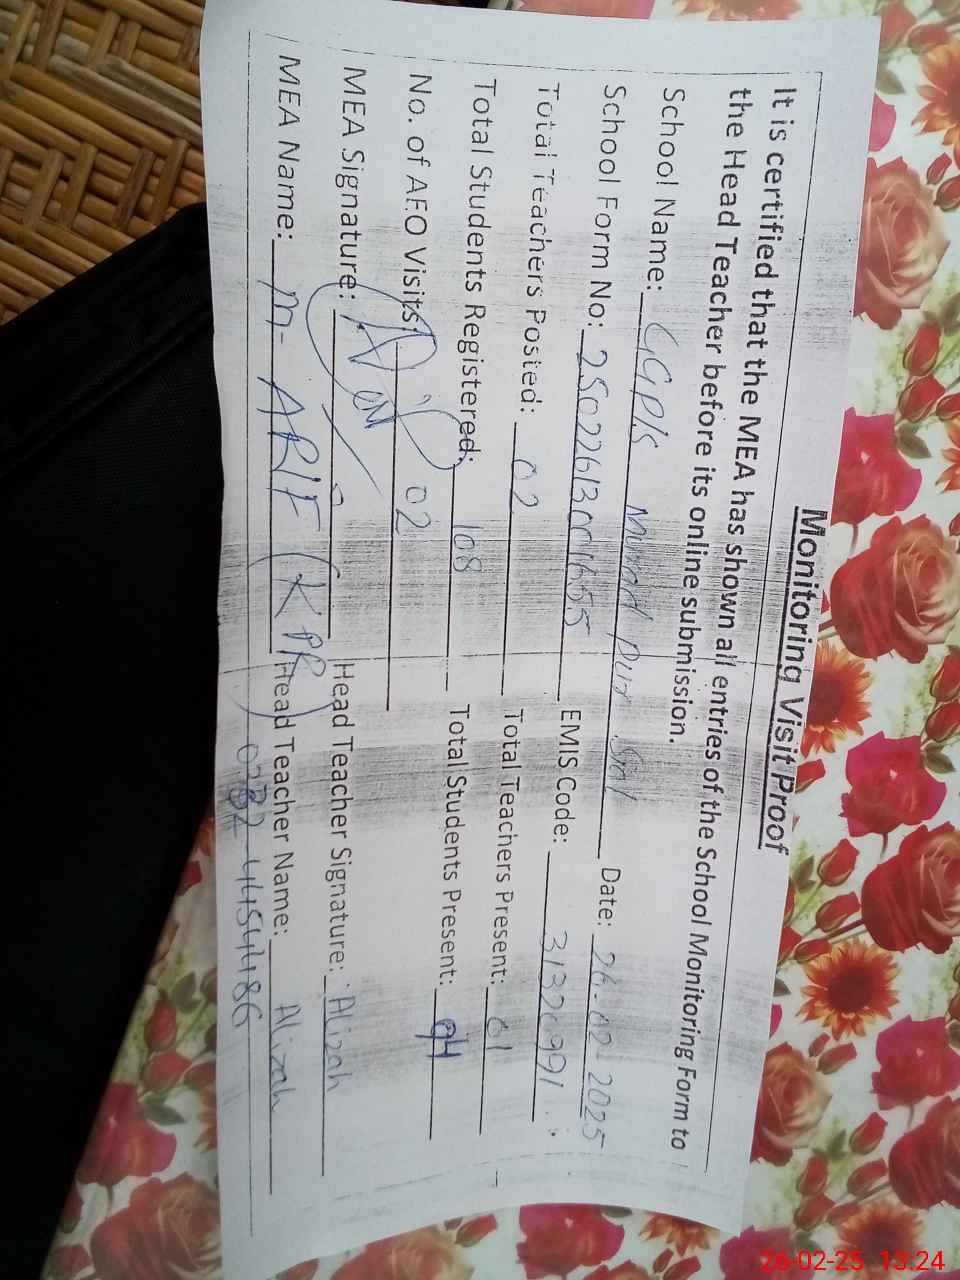 Monitoring Visit Proof
It is certified that the MEA has shown all entries of the School Monitoring Form to
the Head Teacher before its online submission.
School Name: GGP/S Murad Pur Date: 26-02-2025
School Form No: 25022613001655 EMIS Code: 31320991
Total Teachers Posted: 02 Total Teachers Present: 01
Total Students Registered: 108 Total Students Present: 94
No. of AEO Visits: 02
MEA Signature: Head Teacher Signature: Alizah
MEA Name: M. ARIF (KPR) Head Teacher Name: Alizah
26-02-25 13:24